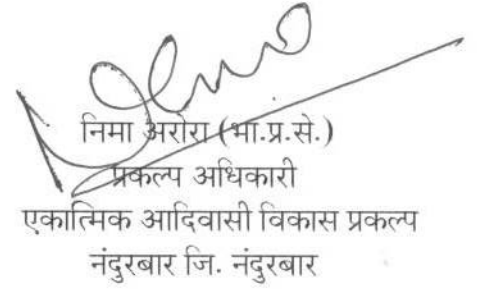 निमा अरोरा (भा.प्र.से.)
प्रकल्प अधिकारी
एकात्मिक आदिवासी विकास प्रकल्प
नंदुरबार जि. नंदुरबार